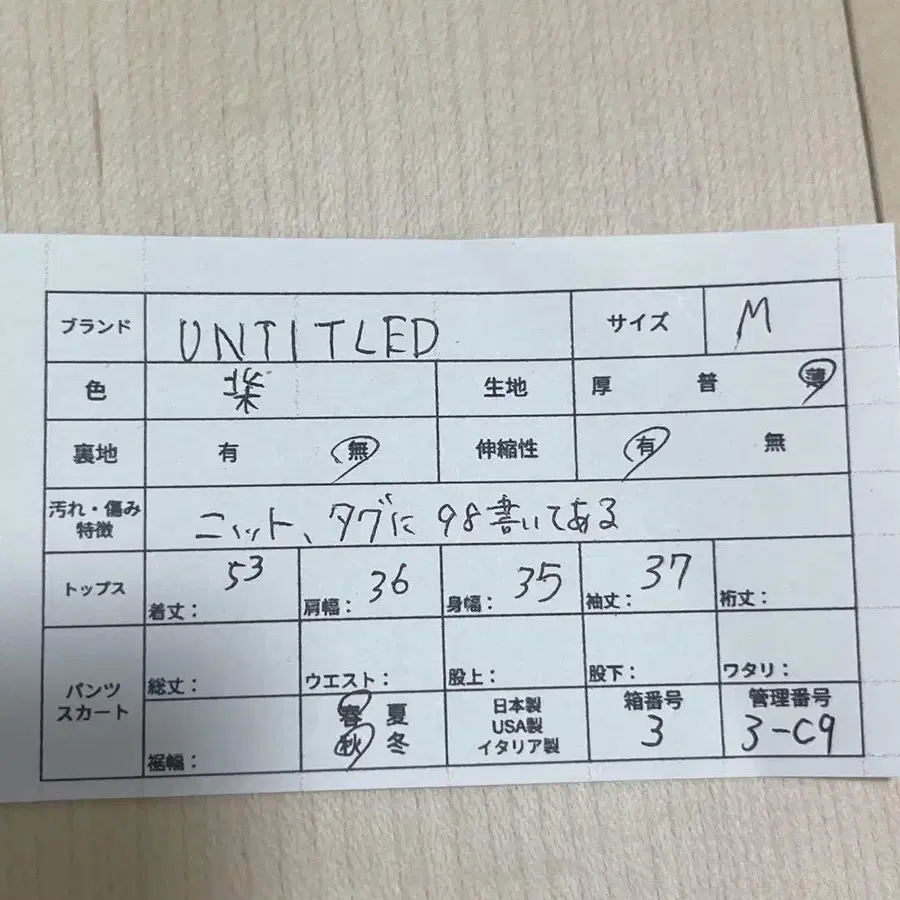 ブランド UNTITLED サイズ M
色 紫 生地 厚 普 薄
裏地 有 無 伸縮性 有 無
汚れ・傷み
特徴 ニット、タグに98書いてある
トップス 着丈: 53 肩幅: 36 身幅: 35 袖丈: 37 裄丈:
パンツ
スカート 総丈: ウエスト: 股上: 股下: ワタリ:
裾幅: 春 夏
秋 冬
日本製
USA製
イタリア製
箱番号
3
管理番号
3-C9